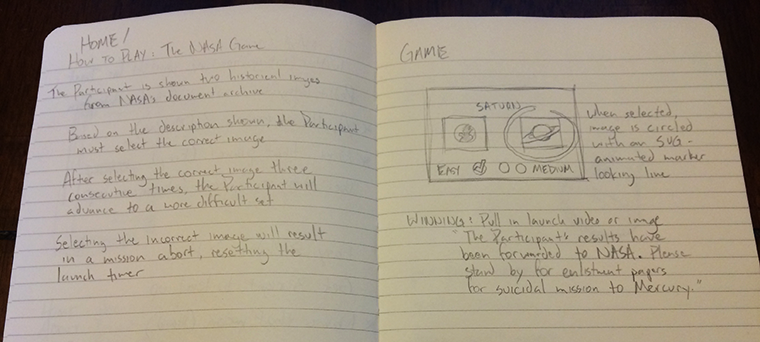 HOME!
HOW TO PLAY: THE NASA Game
The Participant is shown two historical images
from NASA's document archive
Based on the description shown, the Participant
must select the correct image
After selecting the correct image three
consecutive times, the Participant will
advance to a more difficult set
Selecting the incorrect image will result
in a mission abort, resetting the
launch timer
GAME
SATURN
EASY
MEDIUM
When selected,
image is circled
with an SVG-
animated marker
looking line
WINNING: Pull in launch video or image
"The Participant's results have
been forwarded to NASA. Please
stand by for enlistment papers
for suicidal mission to Mercury."